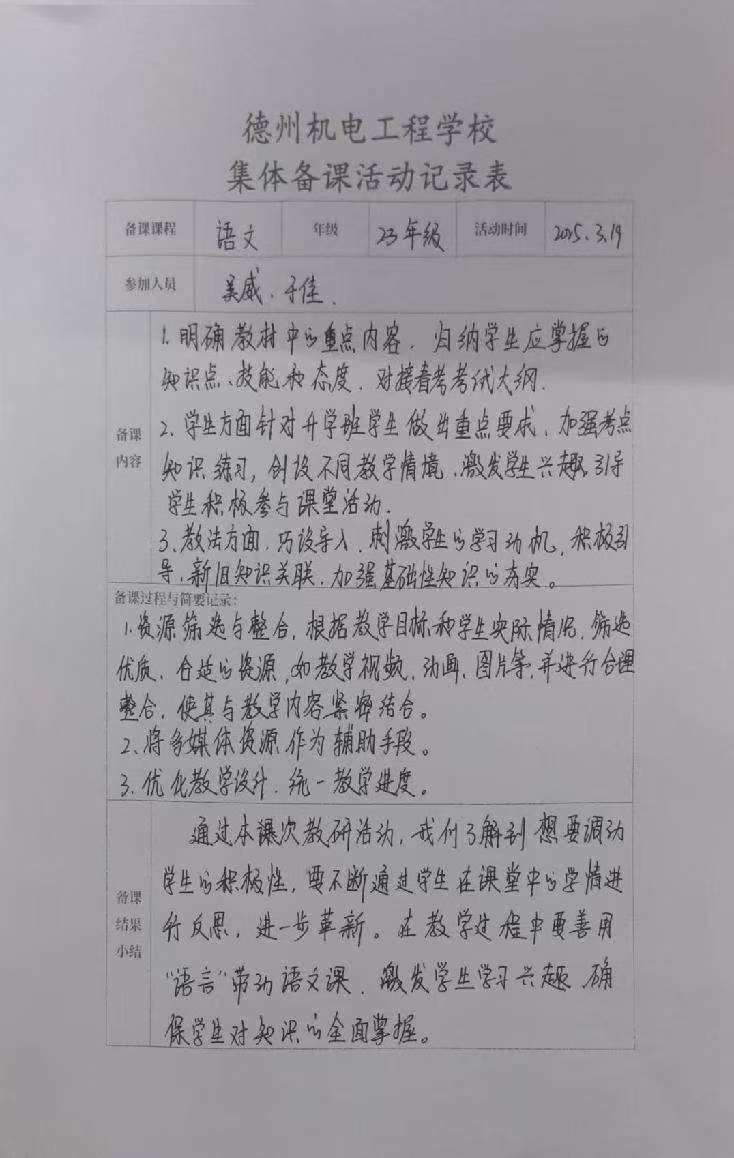 德州机电工程学校
集体备课活动记录表
备课课程 语文 年级 23年级 活动时间 2025.3.19
参加人员 吴威、于佳.
备课内容
1. 明确教材中的重点内容. 归纳学生应掌握的
知识点、技能和态度. 对接春考考试大纲.
2、学生方面针对升学班学生做出重点要求. 加强考点
知识练习, 创设不同教学情境、激发学生兴趣引导
学生积极参与课堂活动.
3、教法方面. 巧设导入. 刺激学生的学习动机, 积极引
导. 新旧知识关联. 加强基础性知识的夯实。
备课过程与简要记录:
1. 资源筛选与整合, 根据教学目标和学生实际情况, 筛选
优质、合适的资源, 如教学视频、动画、图片等, 并进行合理
整合, 使其与教学内容紧密结合。
2、将多媒体资源作为辅助手段。
3. 优化教学设计. 统一教学进度。
备课结果小结
通过本课次教研活动, 我们了解到想要调动
学生的积极性, 要不断通过学生在课堂中的学情进
行反思, 进一步革新。在教学过程中要善用
“语言”带动语文课. 激发学生学习兴趣. 确
保学生对知识的全面掌握。